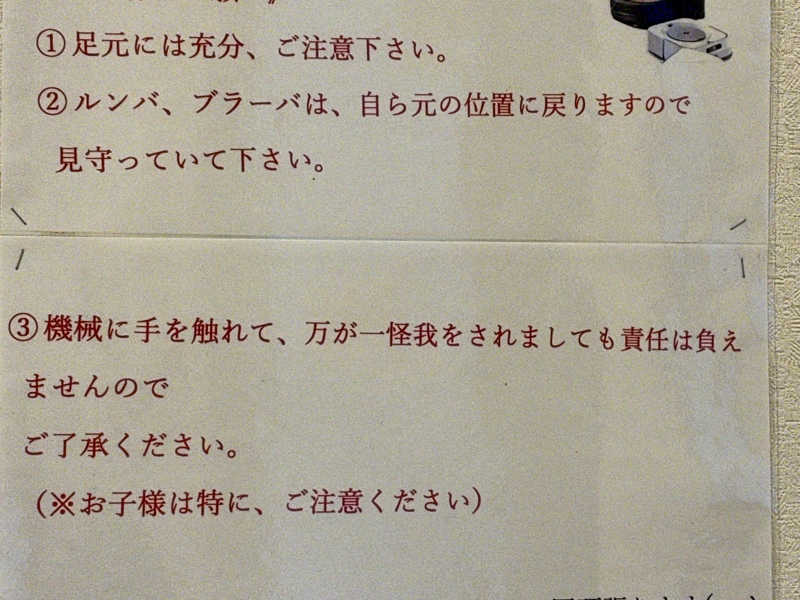 ①足元には充分、ご注意下さい。
②ルンバ、ブラーバは、自ら元の位置に戻りますので
見守っていて下さい。
③機械に手を触れて、万が一怪我をされましても責任は負え
ませんので
ご了承ください。
(※お子様は特に、ご注意ください)